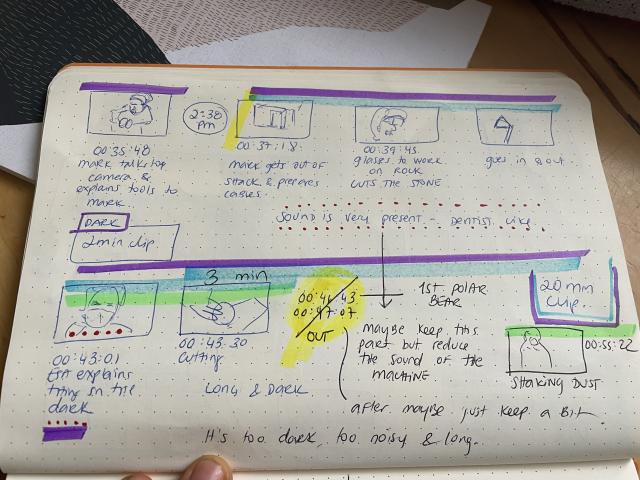 2:38
pm
00:35:48
mark talks top
camera &
explains tools to
mark.
00:37:18.
mark gets out of
shack & prepares
cables.
00:39:45.
glasses to work
on rock
CUTS THE STONE
goes in & out.
DARK
2min clip.
Sound is very present - Dentist like
3 min
00:43:01
explains
in the
dark
00:43:30
Cutting
Long & Dark
00:47:07
OUT
1ST POLAR
BEAR
maybe keep this
part but reduce
the sound of the
MACHINE
after maybe just keep a bit
20 min
clip.
00:55:22
SHAKING DUST
It's too dark, too noisy & long.